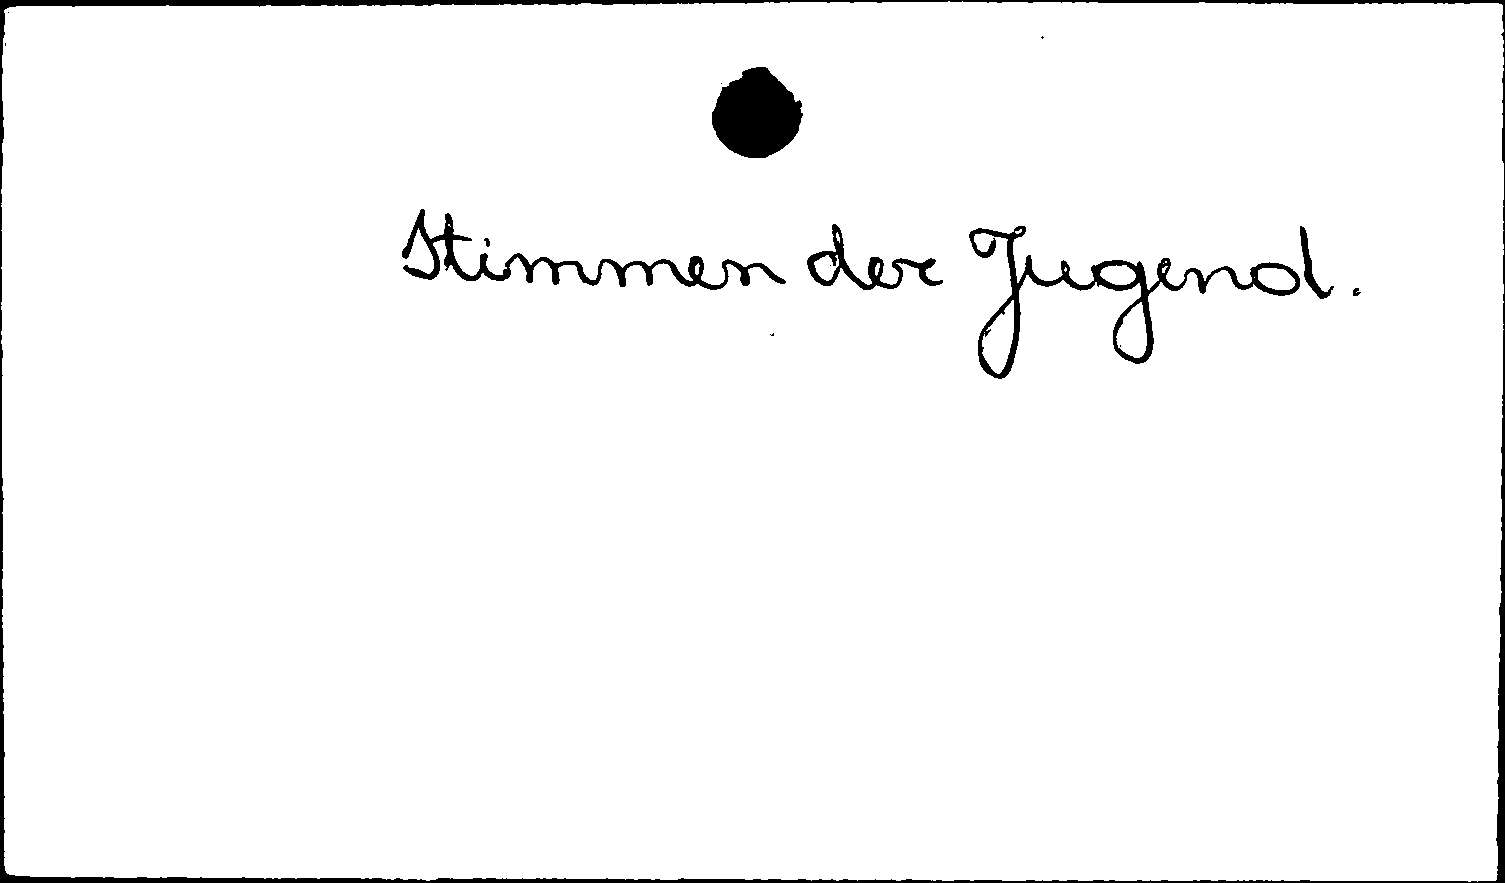 Stimmen der Jugend.